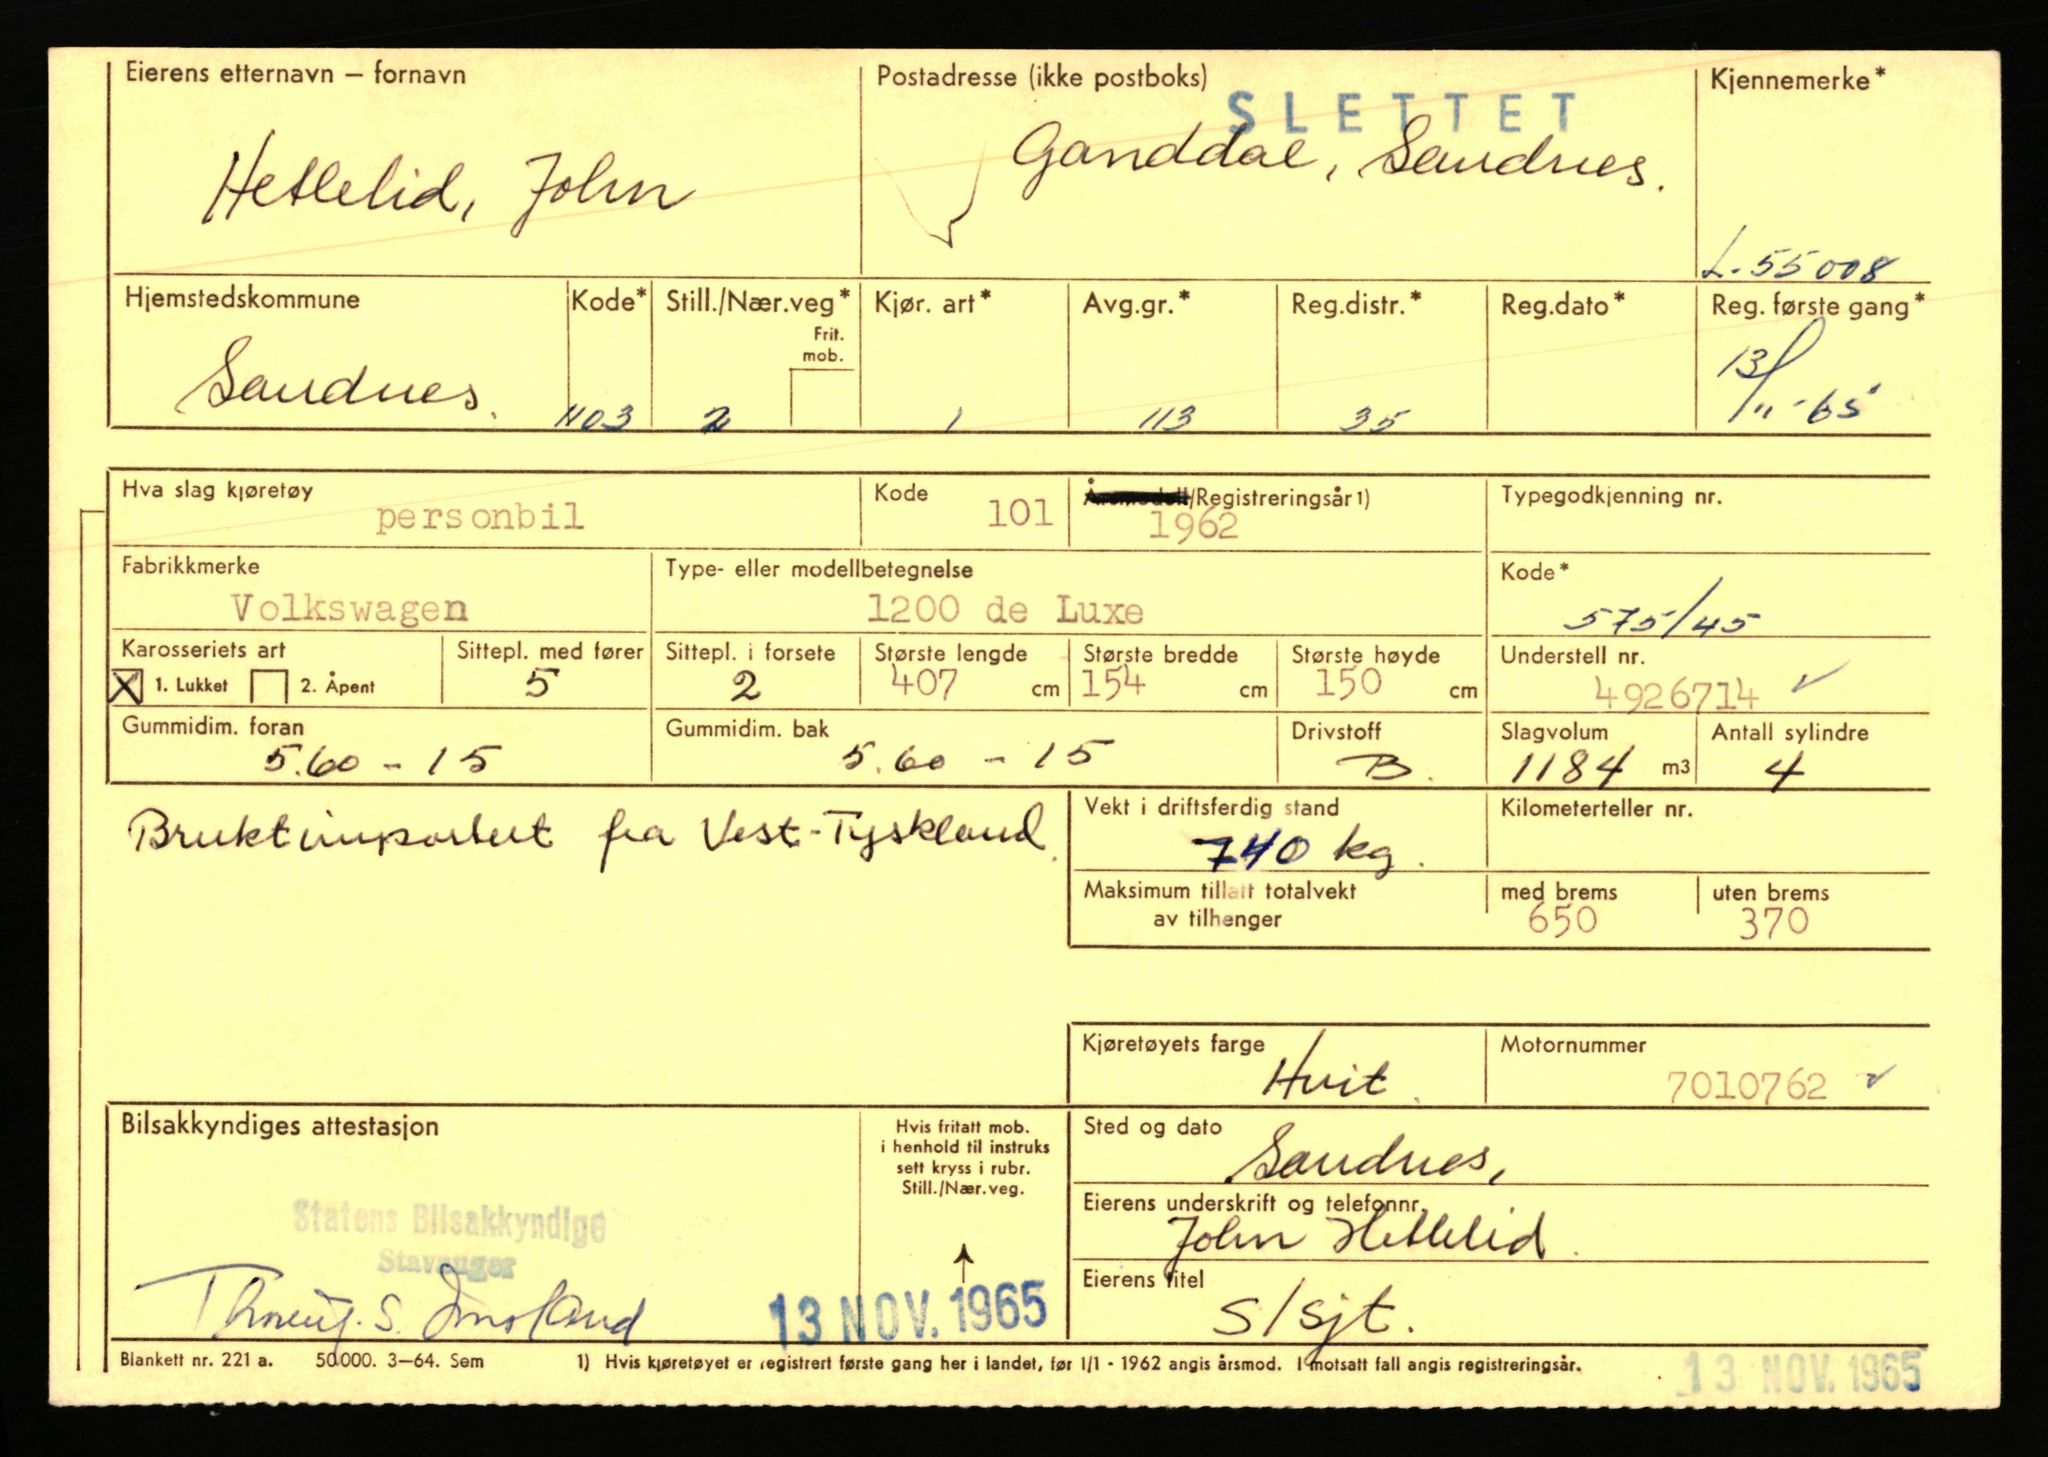 Eierens etternavn – fornavn
Hetlelid, John
Postadresse (ikke postboks)
SLETTET
Ganddal, Sandnes.
Kjennemerke*
L-55008
Hjemstedskommune
Sandnes.
Kode*
1103
Still./Nær.veg*
Frit.
mob.
2
Kjør. art*
1
Avg.gr.*
113
Reg.distr.*
35
Reg.dato*
Reg. første gang*
13/11-65
Hva slag kjøretøy
personbil
Kode
101
/Registreringsår 1)
1962
Typegodkjenning nr.
Fabrikkmerke
Volkswagen
Type- eller modellbetegnelse
1200 de Luxe
Kode*
575/45
Karosseriets art
X 1. Lukket 2. Åpent
Sittepl. med fører
5
Sittepl. i forsete
2
Største lengde
407 cm
Største bredde
154 cm
Største høyde
150 cm
Understell nr.
4926714 ✓
Gummidim. foran
5.60 - 15
Gummidim. bak
5.60 - 15
Drivstoff
B.
Slagvolum
1184 m3
Antall sylindre
4
Bruktimportert fra Vest-Tyskland.
Vekt i driftsferdig stand
740 kg.
Kilometerteller nr.
Maksimum tillatt totalvekt
av tilhenger
med brems
650
uten brems
370
Kjøretøyets farge
Hvit.
Motornummer
7010762 ✓
Bilsakkyndiges attestasjon
Statens Bilsakkyndige
Stavanger
Hvis fritatt mob.
i henhold til instruks
sett kryss i rubr.
Still./Nær.veg.
13 NOV. 1965
Sted og dato
Sandnes,
Eierens underskrift og telefonnr.
John Hetlelid.
Eierens titel
S/sjt.
Blankett nr. 221 a. 50000. 3–64. Sem
1) Hvis kjøretøyet er registrert første gang her i landet, før 1/1 - 1962 angis årsmod. I motsatt fall angis registreringsår.
13 NOV. 1965